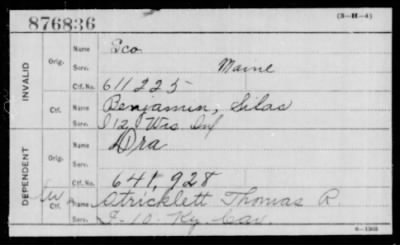 876836
(3-H-4)
INVALID
Orig.
Name Geo
Serv. Maine
Ctf. No. 611225
Ctf.
Name Benjamin, Silas
Serv. I 12 Wis Inf
DEPENDENT
Orig.
Name Ora
Serv.
Ctf. No. 641,928
Ctf.
Name Stricklett Thomas R.
Serv. I-10-Ky. Cav.